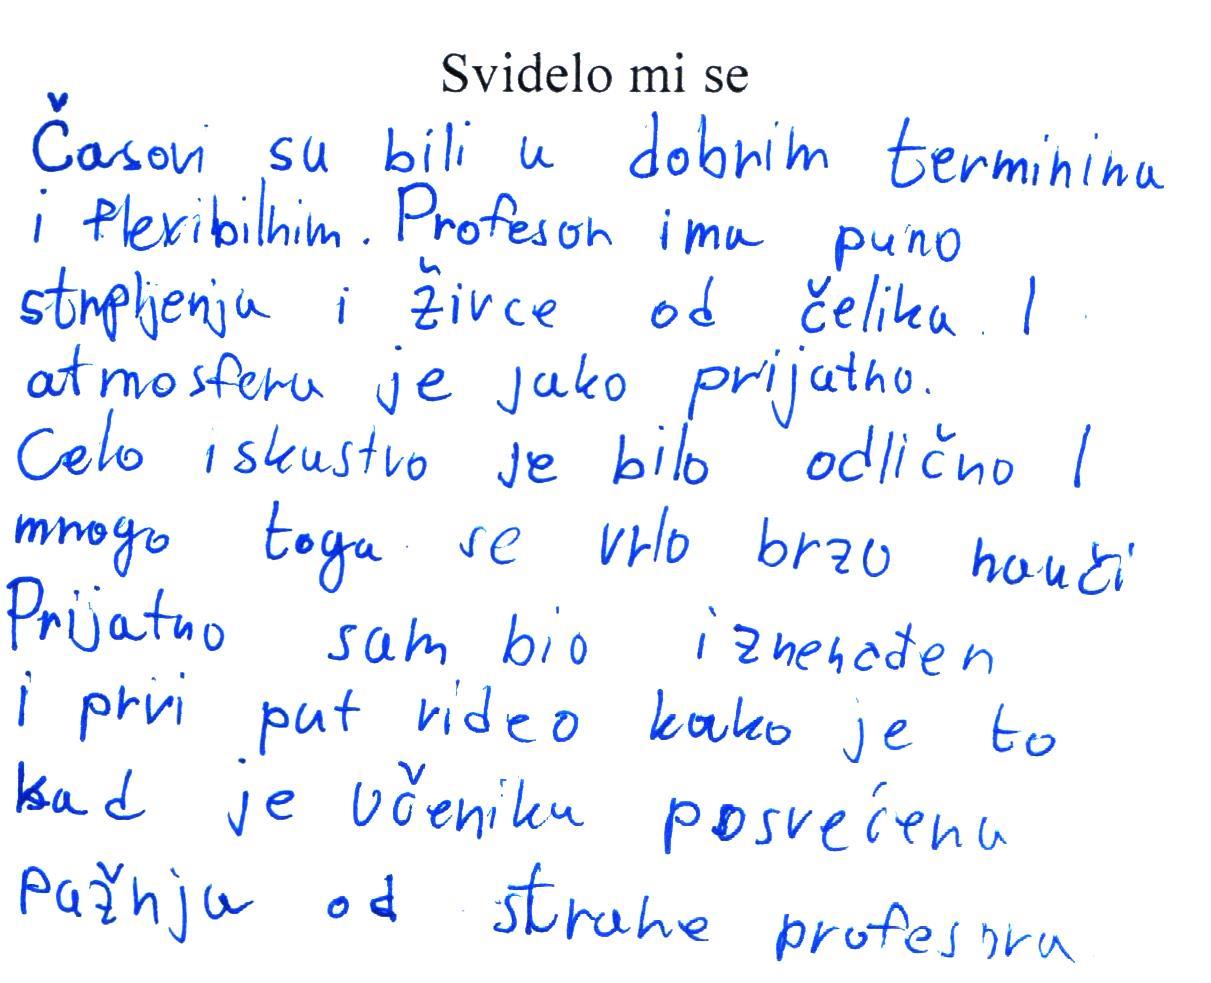 Svidelo mi se
Časovi su bili u dobrim terminima
i flexibilnim. Profesor ima puno
strpljenja i živce od čelika. I
atmosfera je jako prijatna.
Celo iskustvo je bilo odlično I
mnogo toga se vrlo brzo nauči
Prijatno sam bio iznenađen
i prvi put video kako je to
kad je učeniku posvećena
pažnja od strane profesora